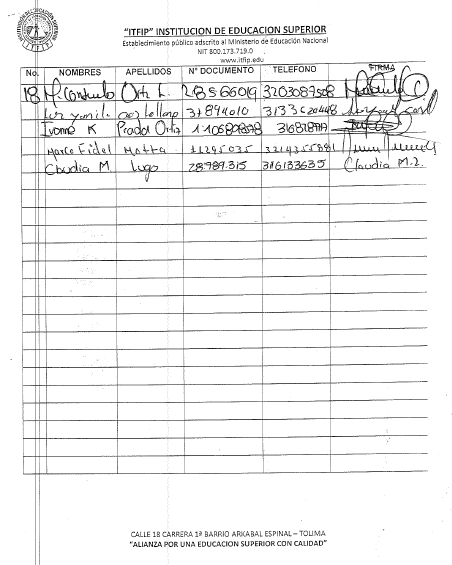 "ITFIP" INSTITUCION DE EDUCACION SUPERIOR
Establecimiento público adscrito al Ministerio de Educación Nacional
NIT 800.173.719.0
www.itfip.edu
No. NOMBRES APELLIDOS N° DOCUMENTO TELEFONO FIRMA
18 M. Consuelo Orti L.
Luz yamile castellano 3133620448
Ivonne K Prada Ortiz
Marco Fidel Motta 11295035 3214355881
Claudia M. Lugo 28.989.315 316133635 Claudia M.L.
CALLE 18 CARRERA 1ª BARRIO ARKABAL ESPINAL – TOLIMA
"ALIANZA POR UNA EDUCACION SUPERIOR CON CALIDAD"